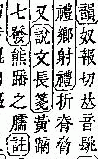 韻奴報切𠀤音
禮鄉射禮折脊脅
又說文長箋黃
七發熊蹯之臑註